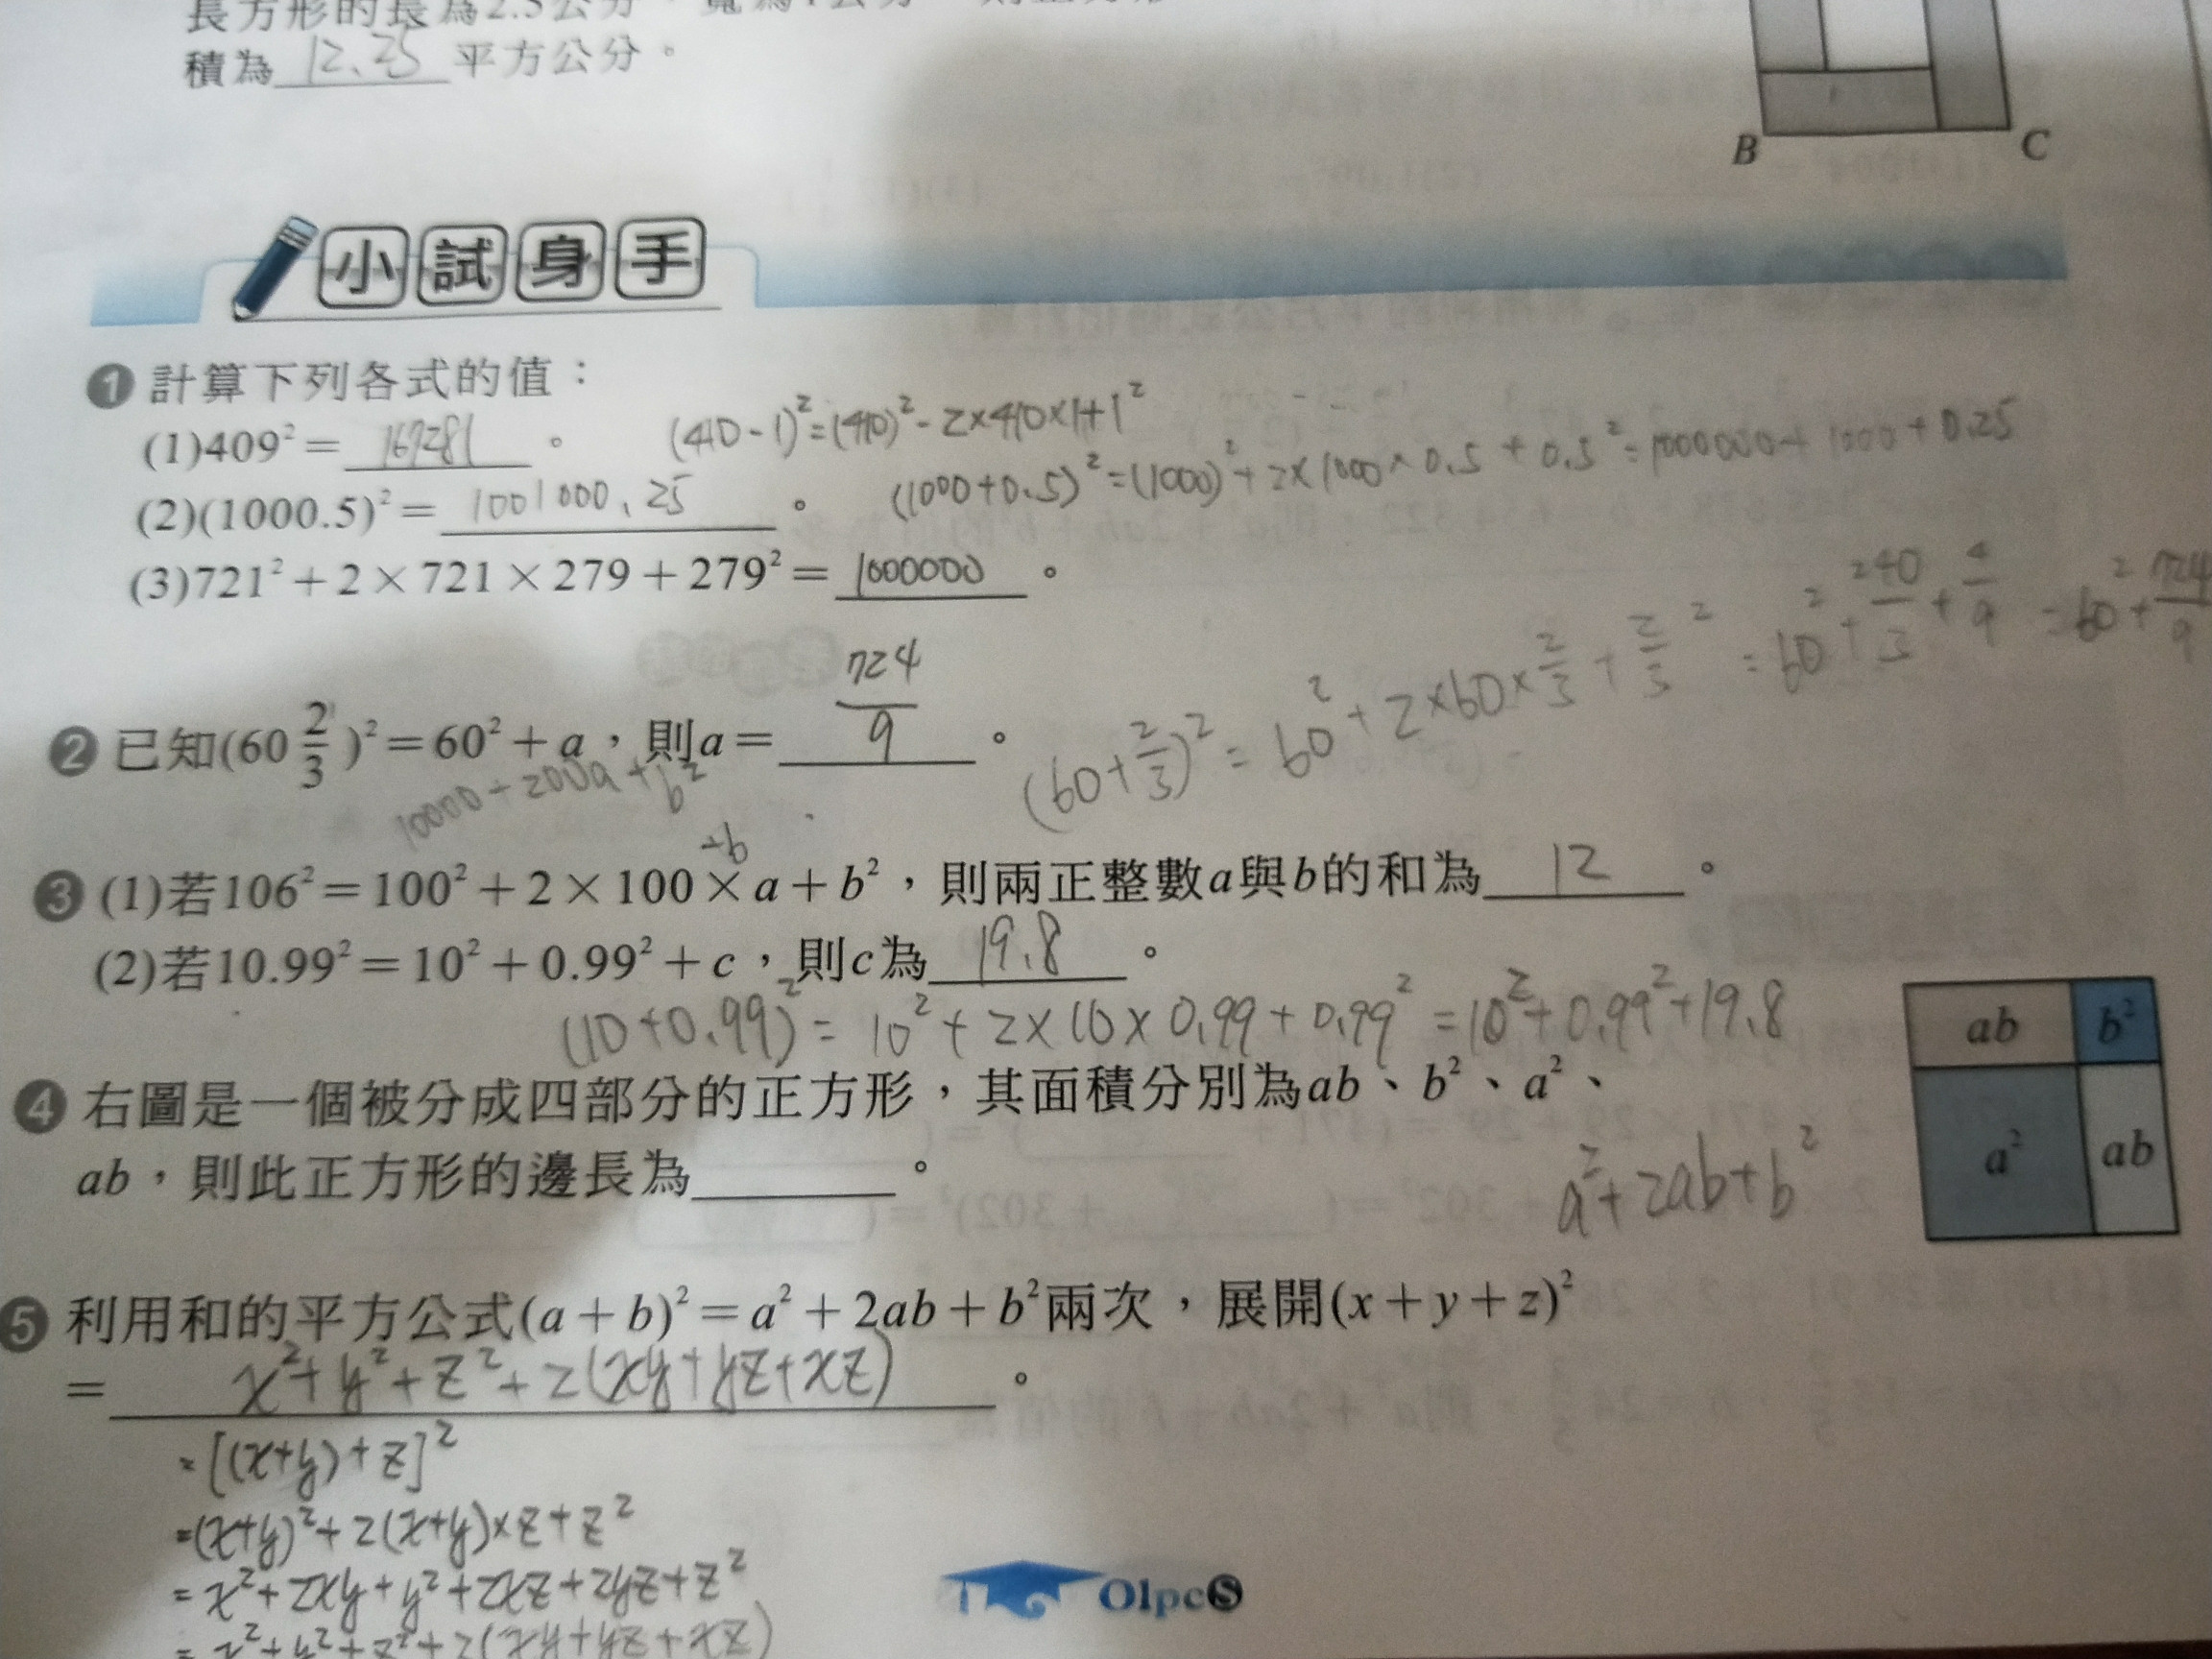 長方形的長為2.5公分
積為 12.25 平方公分。
B
C
小試身手
❶ 計算下列各式的值：
(1)409² = 167281 。 (410-1)²=(410)²-2×410×1+1²
(2)(1000.5)² = 1001000.25 。 (1000+0.5)²=(1000)²+2×1000×0.5+0.5²=1000000+1000+0.25
(3)721² + 2 × 721 × 279 + 279² = 1000000 。
❷ 已知(60 2/3)² = 60² + a，則a = 724/9 。 (60+2/3)² = 60²+2×60×2/3+2/3² = 60²+240/3+4/9 = 60²+724/9
10000+200a+b²
+b
❸ (1)若106² = 100² + 2 × 100 × a + b²，則兩正整數a與b的和為 12 。
(2)若10.99² = 10² + 0.99² + c，則c為 19.8 。
(10+0.99)² = 10²+2×10×0.99+0.99² = 10²+0.99²+19.8
❹ 右圖是一個被分成四部分的正方形，其面積分別為ab、b²、a²、
ab，則此正方形的邊長為 。
a²+2ab+b²
ab b²
a² ab
❺ 利用和的平方公式(a + b)² = a² + 2ab + b²兩次，展開(x + y + z)²
= x²+y²+z²+2(xy+yz+xz) 。
=[(x+y)+z]²
=(x+y)²+2(x+y)×z+z²
=x²+2xy+y²+2xz+2yz+z²
=x²+y²+z²+2(xy+yz+xz)
OlpcS